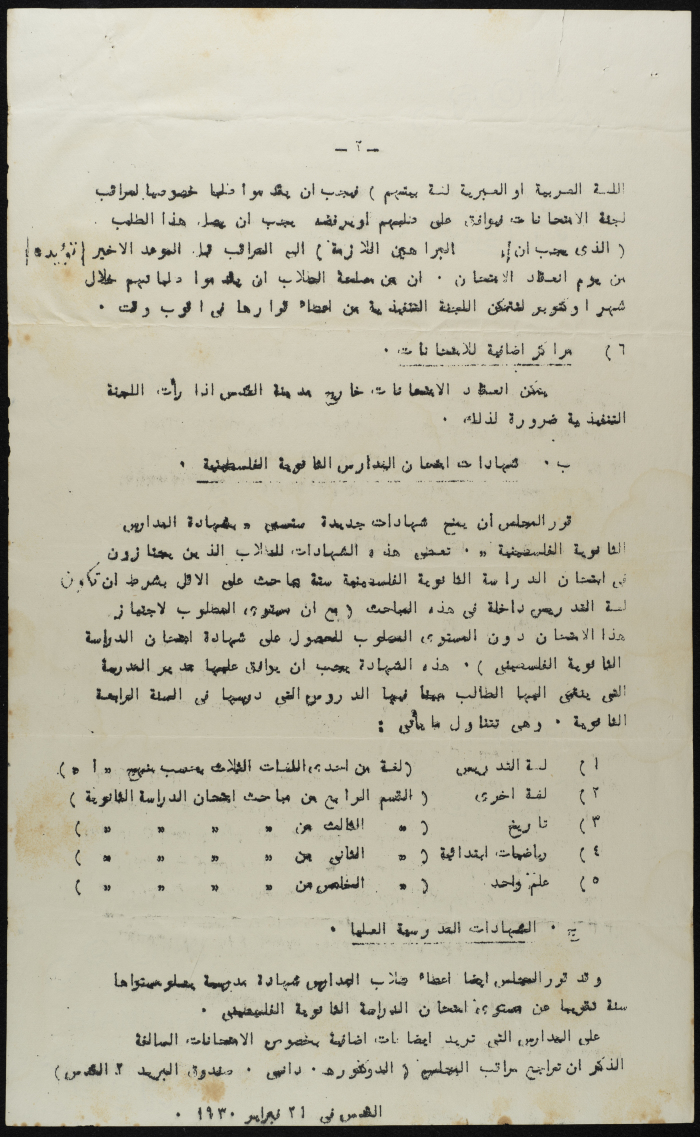 - ٢ -
اللغة العربية او العبرية لغة بيتهم ) فيجب ان يقدموا طلبا خصوصيا لمراقب
لجنة الامتحانات فيوافق على طلبهم او يرفضه يجب ان يصل هذا الطلب
( الذى يجب ان تؤيده البراهين اللازمة ) الى المراقب قبل الموعد الاخير
من يوم انعقاد الامتحان ٠ ان من مصلحة الطلاب ان يقدموا طلباتهم خلال
شهر اوكتوبر لتتمكن اللجنة التنفيذية من اعطاء قرارها فى اقرب وقت ٠
٦ ) مراكز اضافية للامتحانات ٠
يمكن انعقاد الامتحانات خارج مدينة القدس اذا رأت اللجنة
التنفيذية ضرورة لذلك ٠
ب ٠ شهادات امتحان المدارس الثانوية الفلسطينية ٠
قرر المجلس أن يمنح شهادات جديدة ستسمى " بشهادة المدارس
الثانوية الفلسطينية " ٠ تعطى هذه الشهادات للطلاب الذين يجتازون
فى امتحان الدراسة الثانوية الفلسطينية ستة مباحث على الاقل بشرط ان تكون
لغة التدريس داخلة فى هذه المباحث ( مع ان مستوى المطلوب لاجتياز
هذا الامتحان دون المستوى المطلوب للحصول على شهادة امتحان الدراسة
الثانوية الفلسطينى ) ٠ هذه الشهادة يجب ان يوافق عليها مدير المدرسة
التى ينتمى اليها الطالب مبينا فيها الدروس التى درسها فى السنة الرابعة
الثانوية ٠ وهى تتناول ما يأتى :
١ ) لغة التدريس ( لغة من احدى اللغات الثلاث بحسب منهج " أ " ) ٠
٢ ) لغة اخرى ( القسم الرابع من مباحث امتحان الدراسة الثانوية )
٣ ) تاريخ ( " الثالث من " " " " )
٤ ) رياضيات ابتدائية ( " الثانى من " " " " )
٥ ) علم واحد ( " الخامس من " " " " )
ج ٠ الشهادات المدرسية العليا ٠
وقد قرر المجلس ايضا اعطاء طلاب المدارس شهادة مدرسية يعلو مستواها
سنة تقريبا عن مستوى امتحان الدراسة الثانوية الفلسطينى ٠
على المدارس التى تريد ايضاحات اضافية بخصوص الامتحانات السالفة
الذكر ان تراجع مراقب المجلس ( الدوكتوره ٠ دانبى ٠ صندوق البريد ٢ القدس )
القدس فى ٢١ فبراير ١٩٣٠ ٠